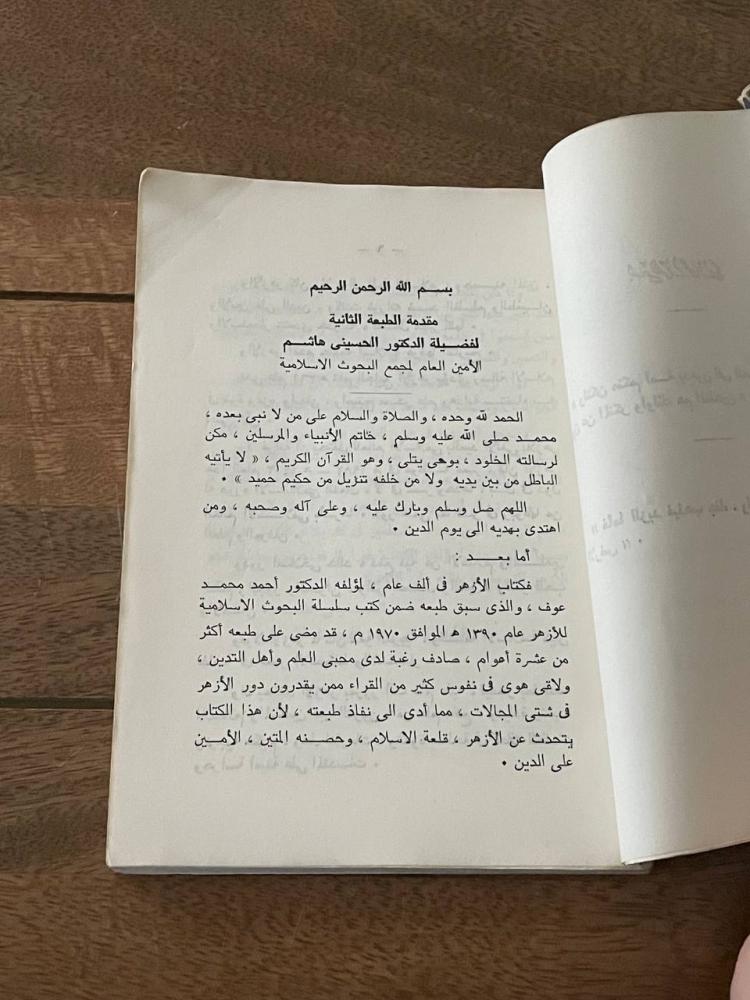 بسم الله الرحمن الرحيم
مقدمة الطبعة الثانية
لفضيلة الدكتور الحسينى هاشم
الأمين العام لمجمع البحوث الاسلامية
الحمد لله وحده ، والصلاة والسلام على من لا نبى بعده ،
محمد صلى الله عليه وسلم ، خاتم الأنبياء والمرسلين ، مكن
لرسالته الخلود ، بوحى يتلى ، وهو القرآن الكريم ، « لا يأتيه
الباطل من بين يديه ولا من خلفه تنزيل من حكيم حميد » .
اللهم صل وسلم وبارك عليه ، وعلى آله وصحبه ، ومن
اهتدى بهديه الى يوم الدين .
أما بعد :
فكتاب الأزهر فى ألف عام ، لمؤلفه الدكتور أحمد محمد
عوف ، والذى سبق طبعه ضمن كتب سلسلة البحوث الاسلامية
للأزهر عام ١٣٩٠ ه الموافق ١٩٧٠ م ، قد مضى على طبعه أكثر
من عشرة أعوام ، صادف رغبة لدى محبى العلم وأهل التدين ،
ولاقى هوى فى نفوس كثير من القراء ممن يقدرون دور الأزهر
فى شتى المجالات ، مما أدى الى نفاذ طبعته ، لأن هذا الكتاب
يتحدث عن الأزهر ، قلعة الاسلام ، وحصنه المتين ، الأمين
على الدين .